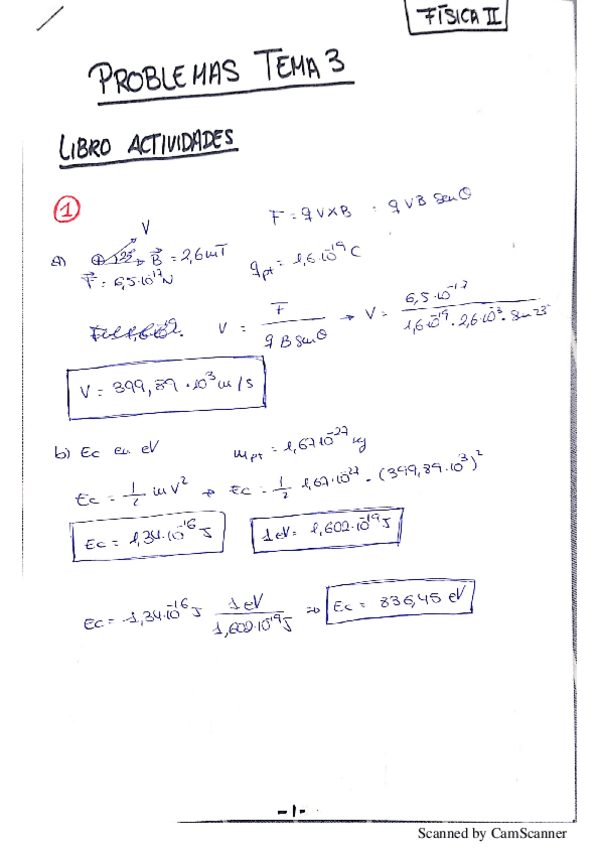 FÍSICA II
PROBLEMAS TEMA 3
LIBRO ACTIVIDADES
1
V
F = q V x B = q V B Sen θ
a) ⊕ 23° B⃗ = 2,6 mT
q pt = 1,6·10⁻¹⁹ C
F⃗ = 6,5·10⁻¹⁷ N
V = F / q B Sen θ → V = 6,5·10⁻¹⁷ / 1,6·10⁻¹⁹ · 2,6·10⁻³ · Sen 23°
V = 399,89 · 10³ m/s
b) Ec en eV m pt = 1,67·10⁻²⁷ kg
Ec = 1/2 m V² → Ec = 1/2 1,67·10⁻²⁷ · (399,89·10³)²
Ec = 1,34·10⁻¹⁶ J 1 eV = 1,602·10⁻¹⁹ J
Ec = 1,34·10⁻¹⁶ J 1 eV / 1,602·10⁻¹⁹ J ⇒ Ec = 836,45 eV
-1-
Scanned by CamScanner